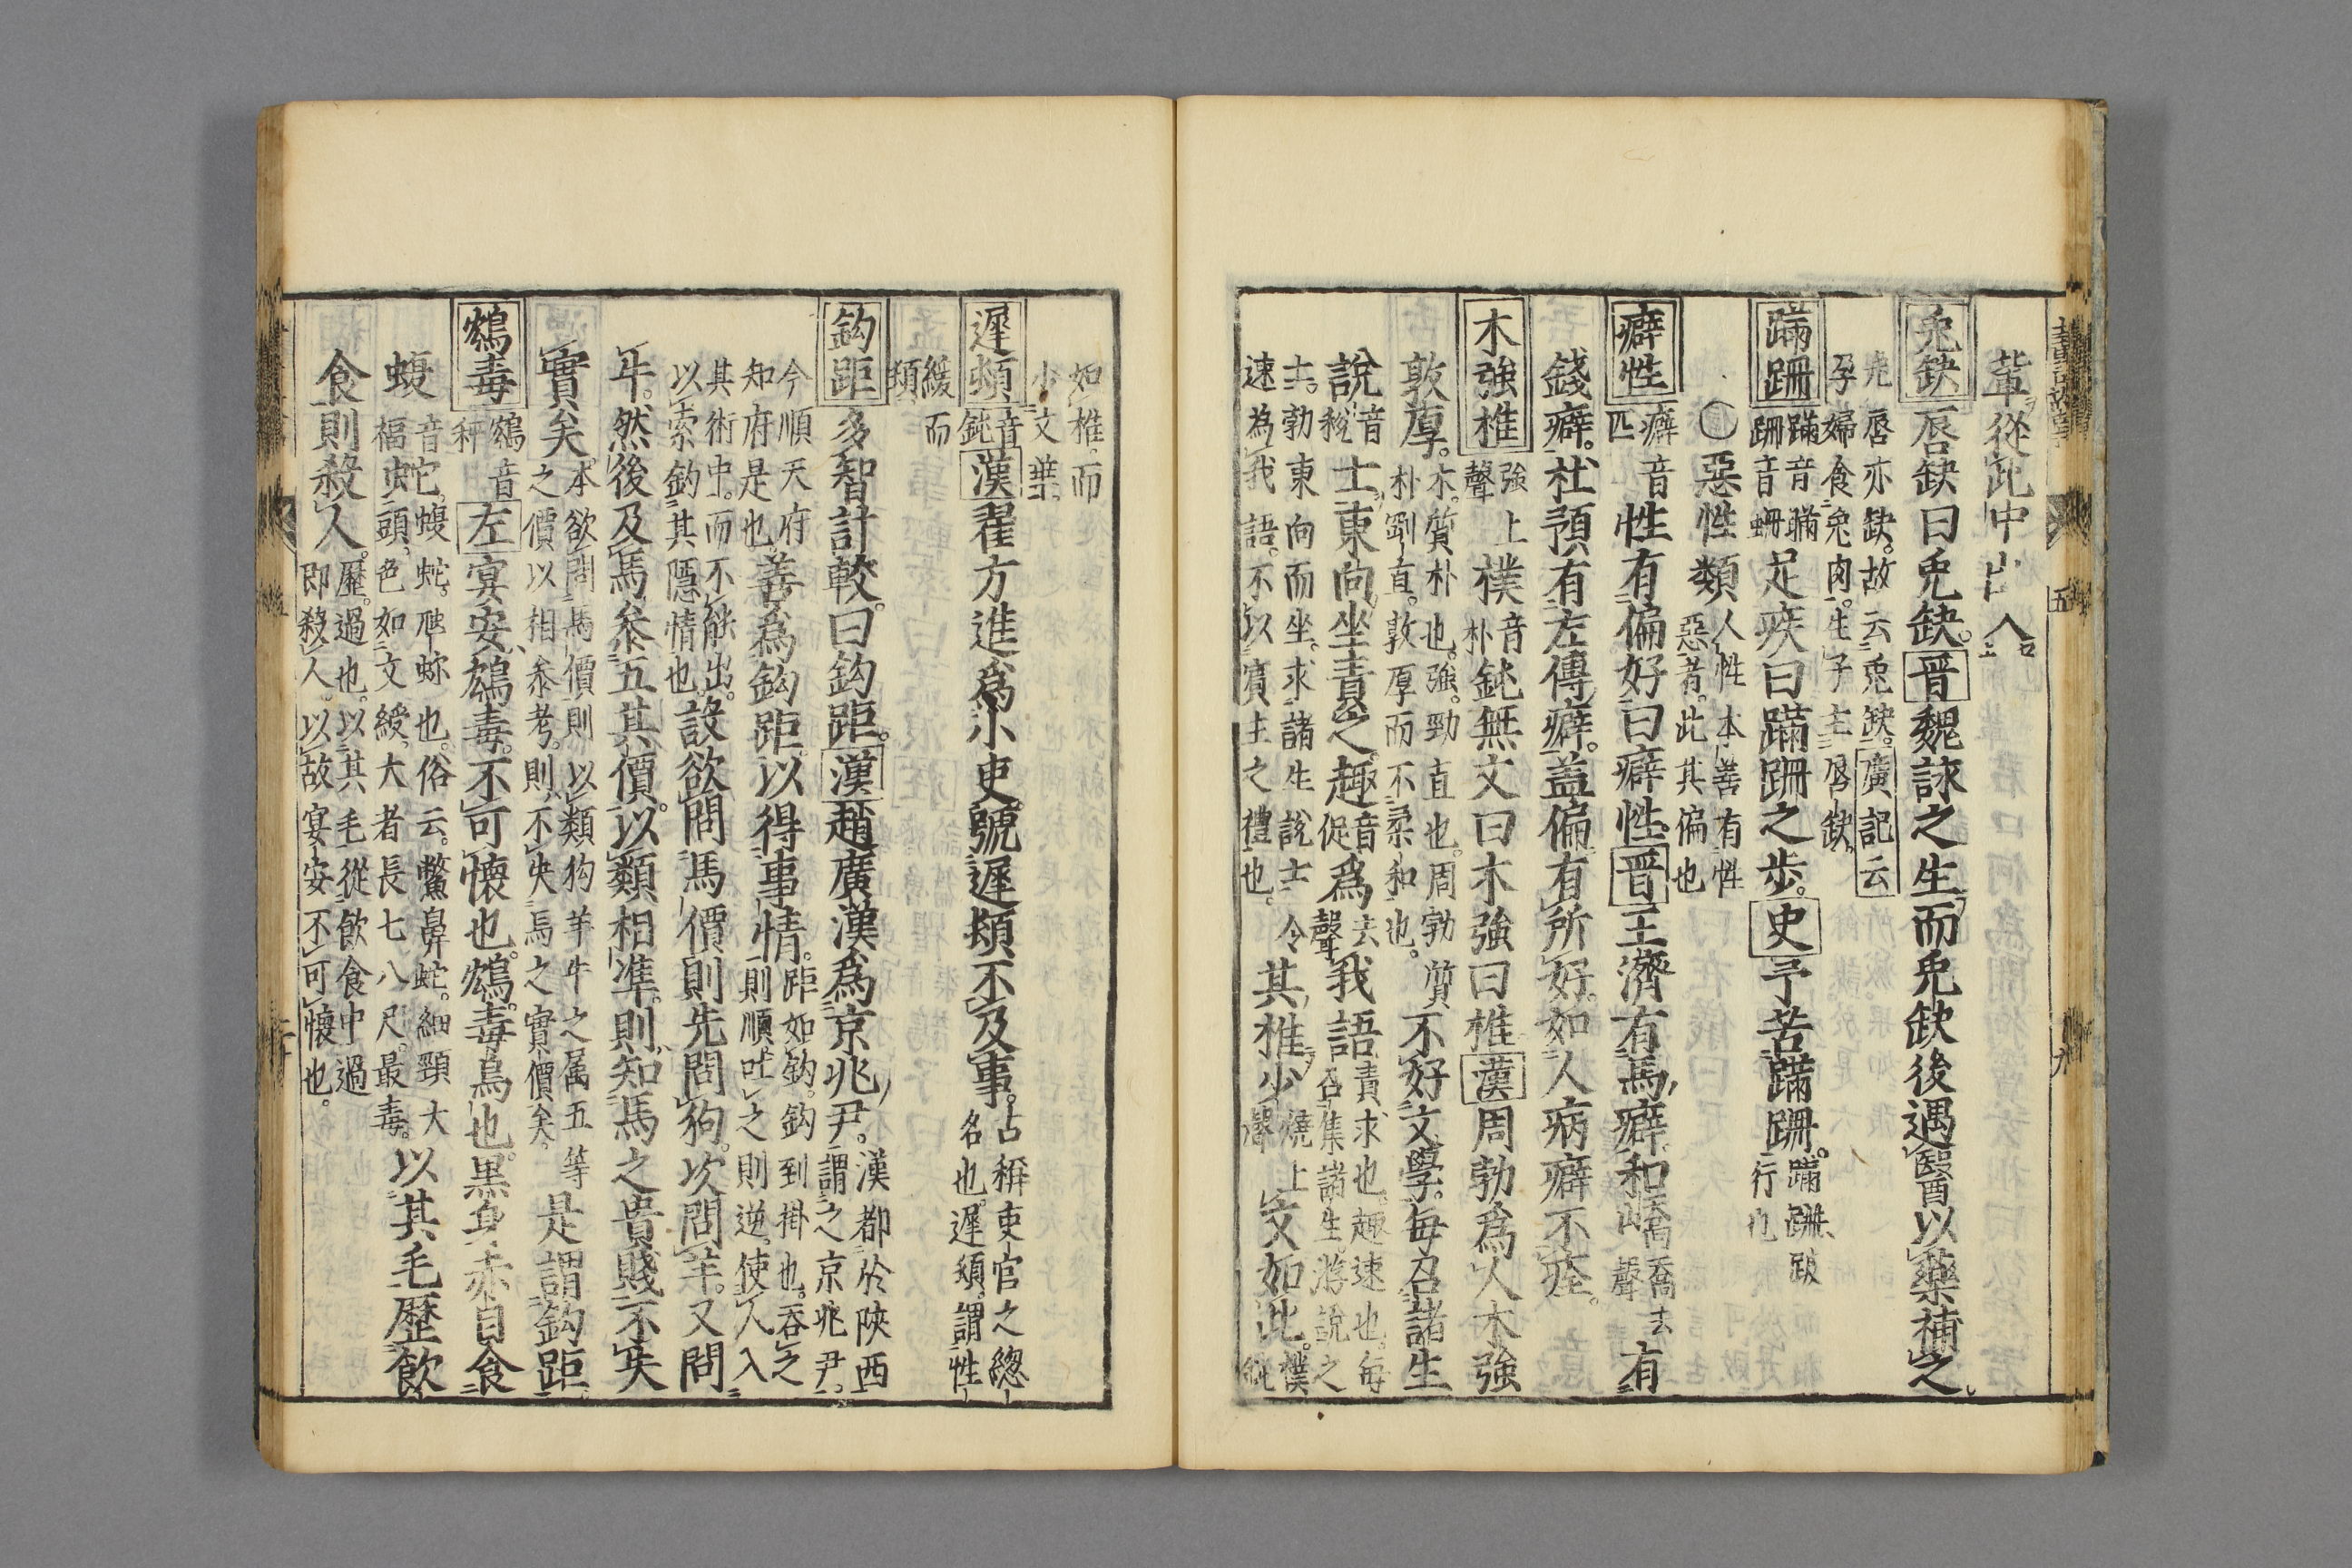 輩從此中出入
兎缺 唇缺曰兎缺。晋魏詠之生而兎缺後遇醫以藥補之
唇亦缺。故云兎缺。廣記云
孕婦食兎肉。生子主唇缺。
蹣跚 蹣音瞞
跚音珊 足疾曰蹣跚之步。史予苦蹣跚。
行也
惡性類 人性本善有性
惡者。此其偏也
癖性 癖音
匹 性有偏好曰癖性。晋王濟有馬癖和嶠 喬去
聲 有
錢癖。杜預有左傳癖。蓋偏有所好。如人病癖不痊。
木強椎 強上
聲 樸 音
朴 鈍無文曰木強曰椎漢周勃爲人木強
敦厚。 木。質朴也。強。勁直也。周勃質
朴剛直。敦厚而不柔和也。 不好文學。每召諸生
說 音
稅 士東向坐責之趣 音
促 爲 去
聲 我語 責求也。趣速也。每
召集諸生游說之
士。勃東向而坐。求諸生說士令
速為我語。不以賓主之禮也。 其椎少文如此。 樸
鈍
如椎。而
少文華。
遲頞 漢翟方進爲小吏號遲頓不及事。 古稱吏官之總
名也。遲頓。謂性
緩而
頓
鈎距 多智計較。曰鈎距。漢趙廣漢爲京兆尹。 漢都於陝西
謂之京兆尹。
今順天府
知府是也 善爲鈎距。以得事情。 距如鈎。鈎到掛也。吞之
則順。吐之則逆。使人入
其術中。而不能出。
以索鈎其隱情也。 設欲問馬價則先問狗。次問羊。又問
牛。然後及馬參五其價。以類相準。則知馬之貴賤不失
實矣。 本欲問馬價則以類狗羊牛之属五等
之價以相參考。則不失馬之實價矣。 是謂鈎距。
鴆毒 鴆音
左宴安鴆毒。不可懷也。鴆。毒鳥也。黒身赤目食
蝮 音
福 蛇。 蝮蛇。虺也。俗云。鱉鼻蛇。細頸大
頭。色如文綬。大者長七八尺。最毒。 以其毛歷飲
食則殺人。 歷。過也。以其毛從飲食中過
即殺人。以故宴安不可懷也。